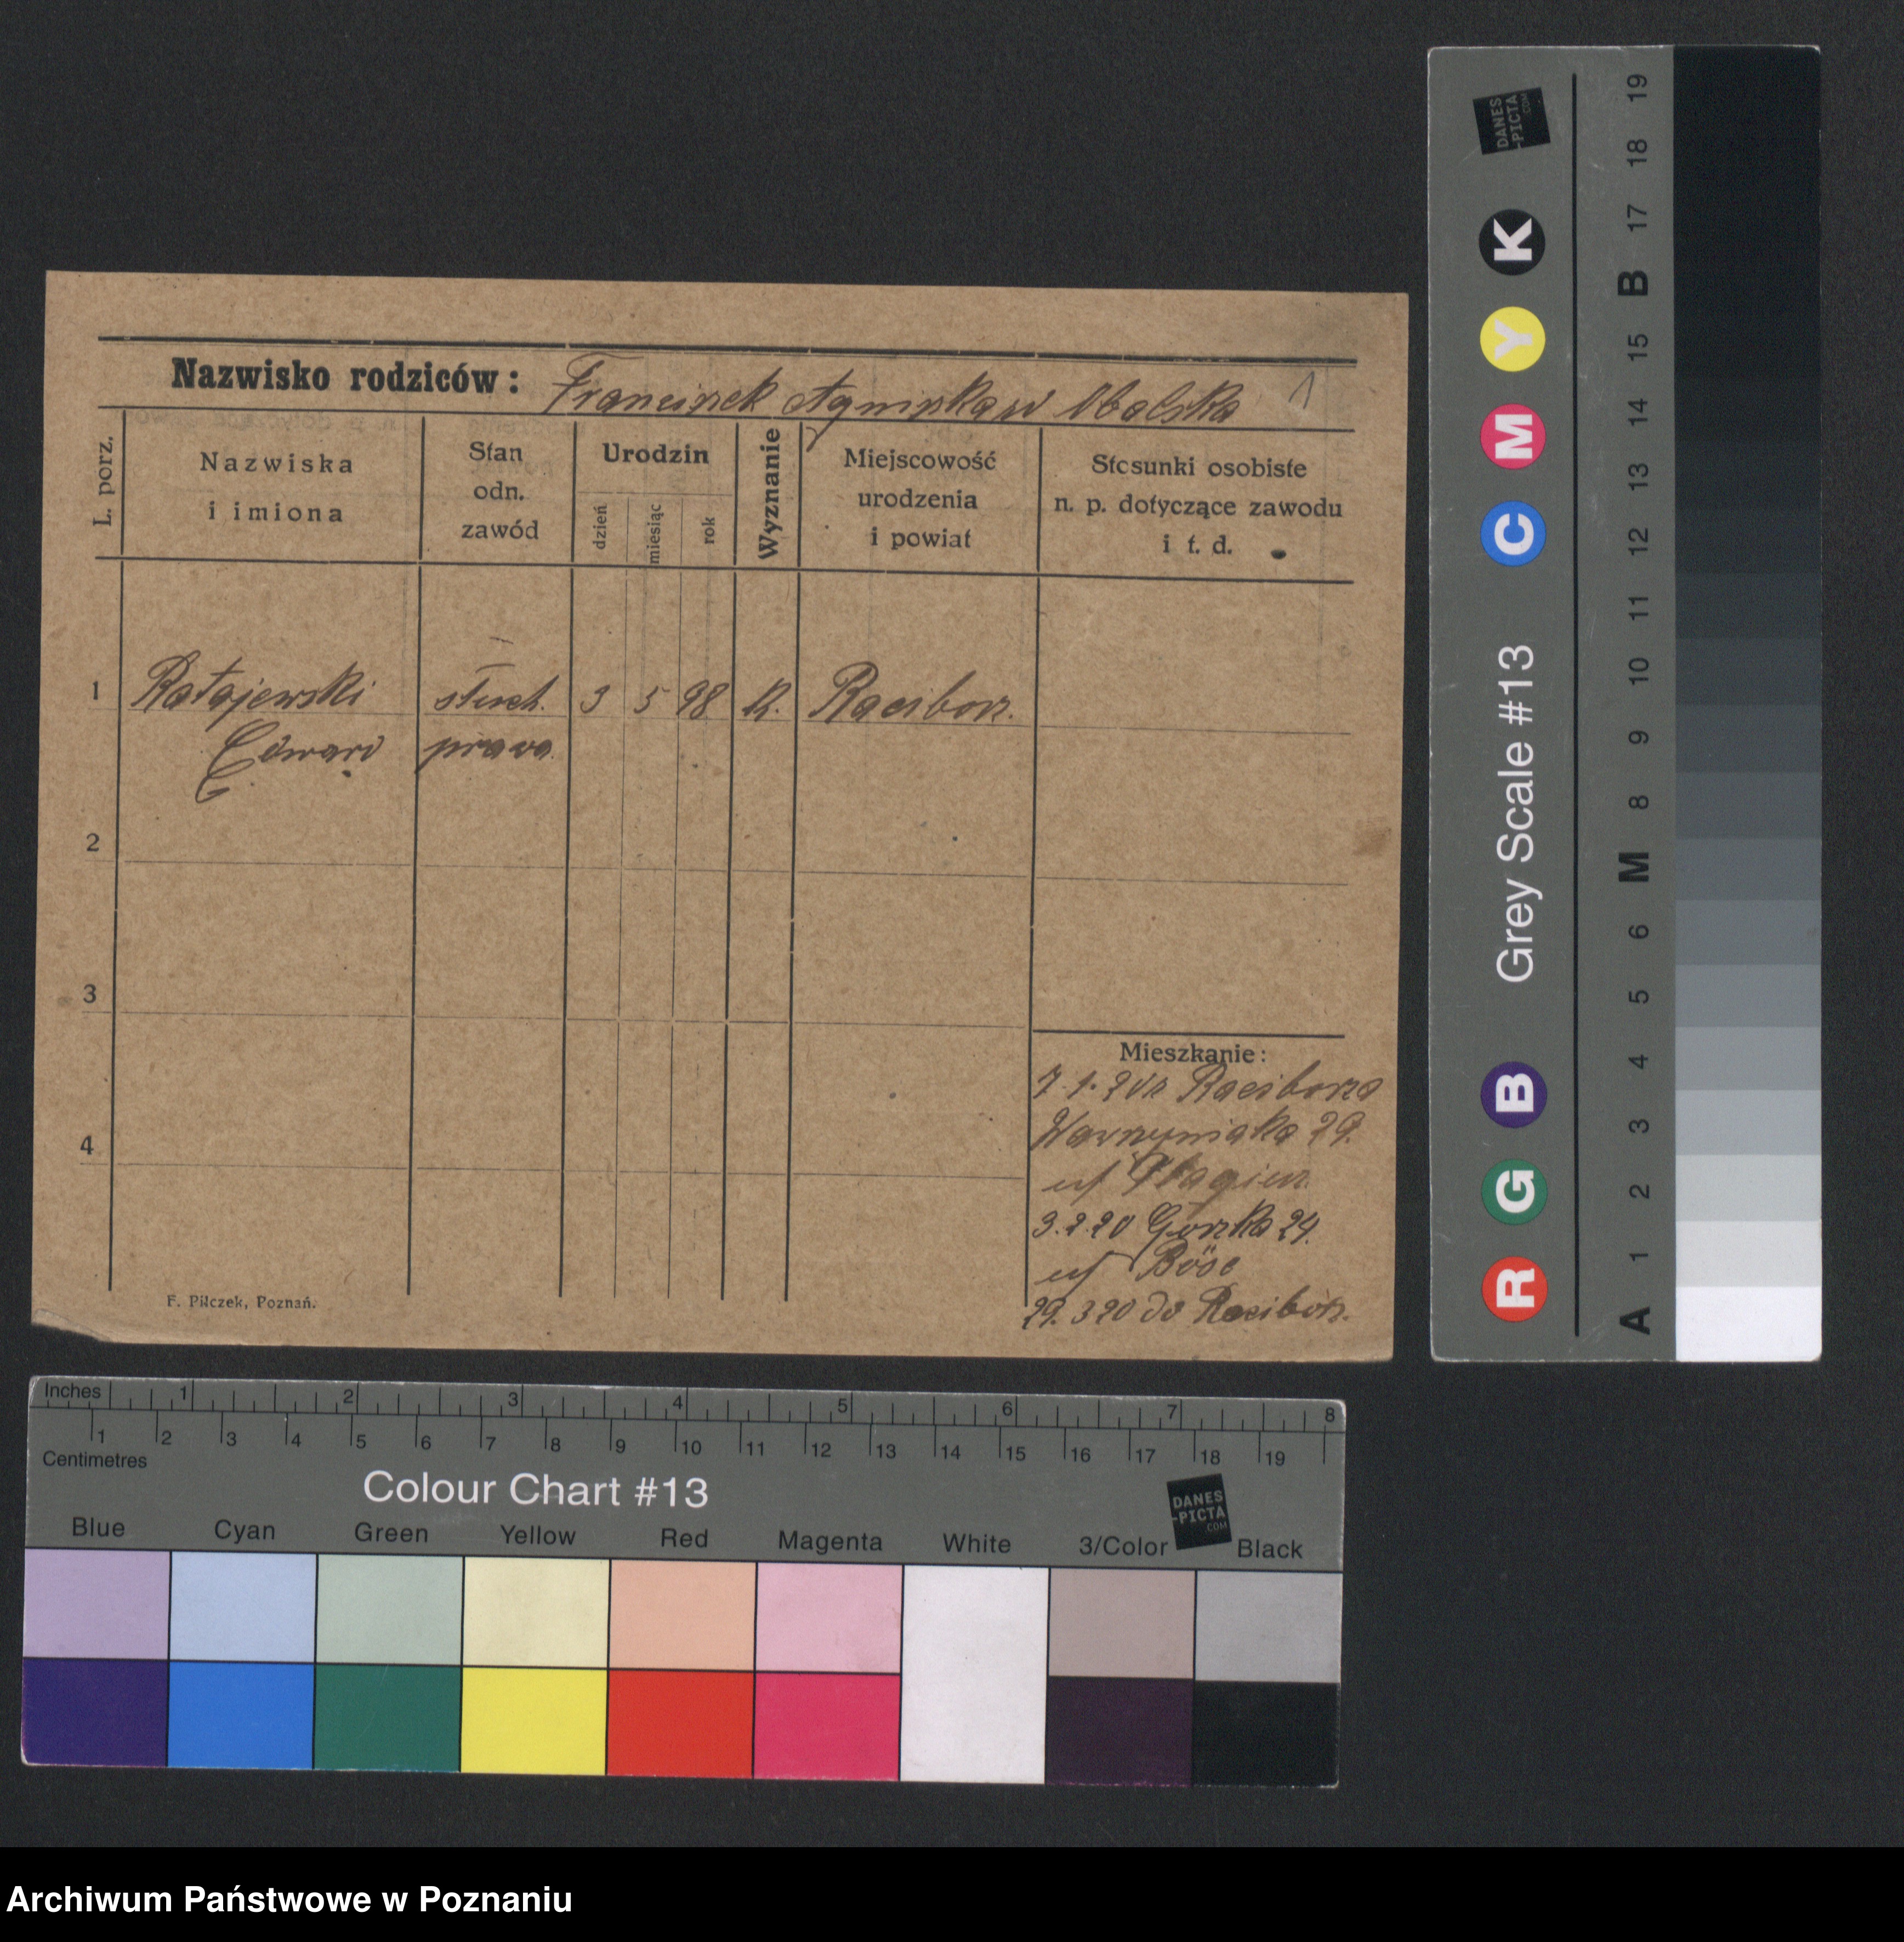 Nazwisko rodziców: Franciszek Agnieszka w Obalska 1
L. porz.
Nazwiska
i imiona
Stan
odn.
zawód
Urodzin
dzień
miesiąc
rok
Wyznanie
Miejscowość
urodzenia
i powiat
Stosunki osobiste
n. p. dotyczące zawodu
i t. d.
1 Ratajewski słuch. 3 5 98 K. Raciborz.
Edward prawa
2
3
4
Mieszkanie:
7.1.20 z Raciborza
Wawrzyniaka 29.
3.2.20 Gorzka 24.
u/ Böse
29.3 20 do Raciborz.
F. Pilczek, Poznań.
DANES
-PICTA
.COM
R G B Grey Scale #13 C M Y K
A 1 2 3 4 5 6 M 8 9 10 11 12 13 14 15 B 17 18 19
Inches 1 2 3 4 5 6 7 8
1 2 3 4 5 6 7 8 9 10 11 12 13 14 15 16 17 18 19
Centimetres
Colour Chart #13
DANES
-PICTA
.COM
Blue Cyan Green Yellow Red Magenta White 3/Color Black
Archiwum Państwowe w Poznaniu